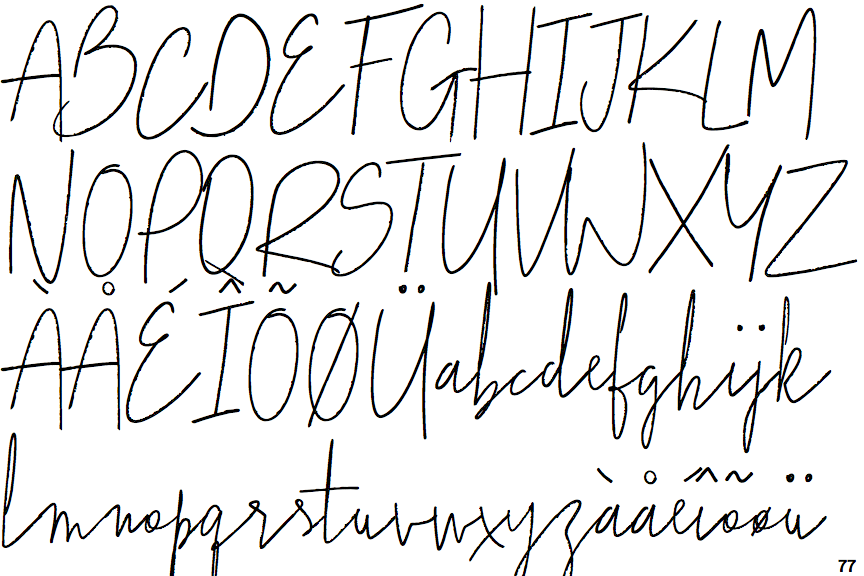 ABCDEFGHIJKLM
NOPQRSTUVWXYZ
ÀÅÉÎÕØÜabcdefghijk
lmnopqrstuvwxyzàåéîõøü
77